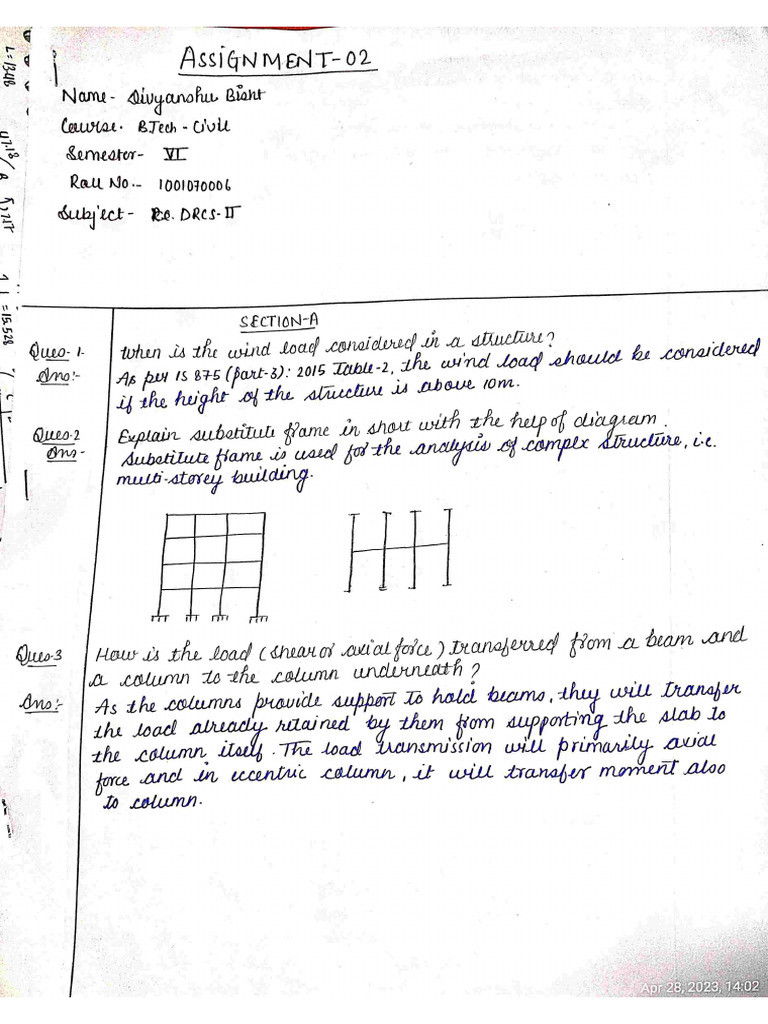 ASSIGNMENT-02
Name- Divyanshu Bisht
Course- BTech - Civil
Semester- VI
Roll No.- 1001070006
Subject- DRCS-II
SECTION-A
Ques-1- When is the wind load considered in a structure?
Ans:- As per IS 875 (Part-3): 2015 Table-2, the wind load should be considered
if the height of the structure is above 10m.
Ques-2 Explain substitute frame in short with the help of diagram.
Ans- Substitute frame is used for the analysis of complex structure, i.e.
multi-storey building.
Ques-3 How is the load (shear or axial force) transferred from a beam and
a column to the column underneath?
Ans:- As the columns provide support to hold beams, they will transfer
the load already retained by them from supporting the slab to
the column itself. The load transmission will primarily axial
force and in eccentric column, it will transfer moment also
to column.
L=13418
=15.528
Apr 28, 2023, 14:02